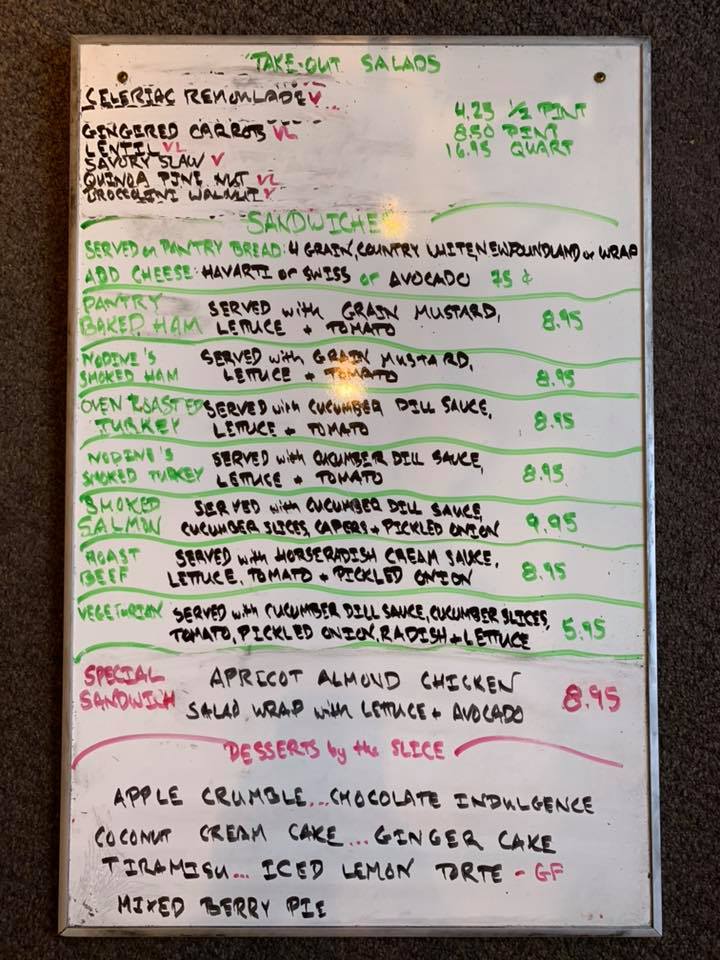 TAKE-OUT SALADS
CELERIAC REMOULADE V
GINGERED CARROTS VL
LENTIL VL
SAVORY SLAW V
QUINOA PINE NUT VL
BROCCOLINI WALNUT V
4.25 1/2 PINT
8.50 PINT
16.95 QUART
SANDWICHES
SERVED on PANTRY BREAD: 4 GRAIN, COUNTRY WHITE NEWFOUNDLAND or WRAP
ADD CHEESE: HAVARTI or SWISS or AVOCADO 75 ¢
PANTRY SERVED with GRAIN MUSTARD,
BAKED HAM LETTUCE + TOMATO 8.95
NODINE'S SERVED with GRAIN MUSTARD,
SMOKED HAM LETTUCE + TOMATO 8.95
OVEN ROASTED SERVED with CUCUMBER DILL SAUCE,
TURKEY LETTUCE + TOMATO 8.95
NODINE'S SERVED with CUCUMBER DILL SAUCE,
SMOKED TURKEY LETTUCE + TOMATO 8.95
SMOKED SERVED with CUCUMBER DILL SAUCE,
SALMON CUCUMBER SLICES, CAPERS + PICKLED ONION 9.95
ROAST SERVED with HORSERADISH CREAM SAUCE,
BEEF LETTUCE, TOMATO + PICKLED ONION 8.95
VEGETARIAN SERVED with CUCUMBER DILL SAUCE, CUCUMBER SLICES,
TOMATO, PICKLED ONION, RADISH + LETTUCE 5.95
SPECIAL APRICOT ALMOND CHICKEN
SANDWICH SALAD WRAP with LETTUCE + AVOCADO 8.95
DESSERTS by the SLICE
APPLE CRUMBLE...CHOCOLATE INDULGENCE
COCONUT CREAM CAKE...GINGER CAKE
TIRAMISU... ICED LEMON TORTE - GF
MIXED BERRY PIE